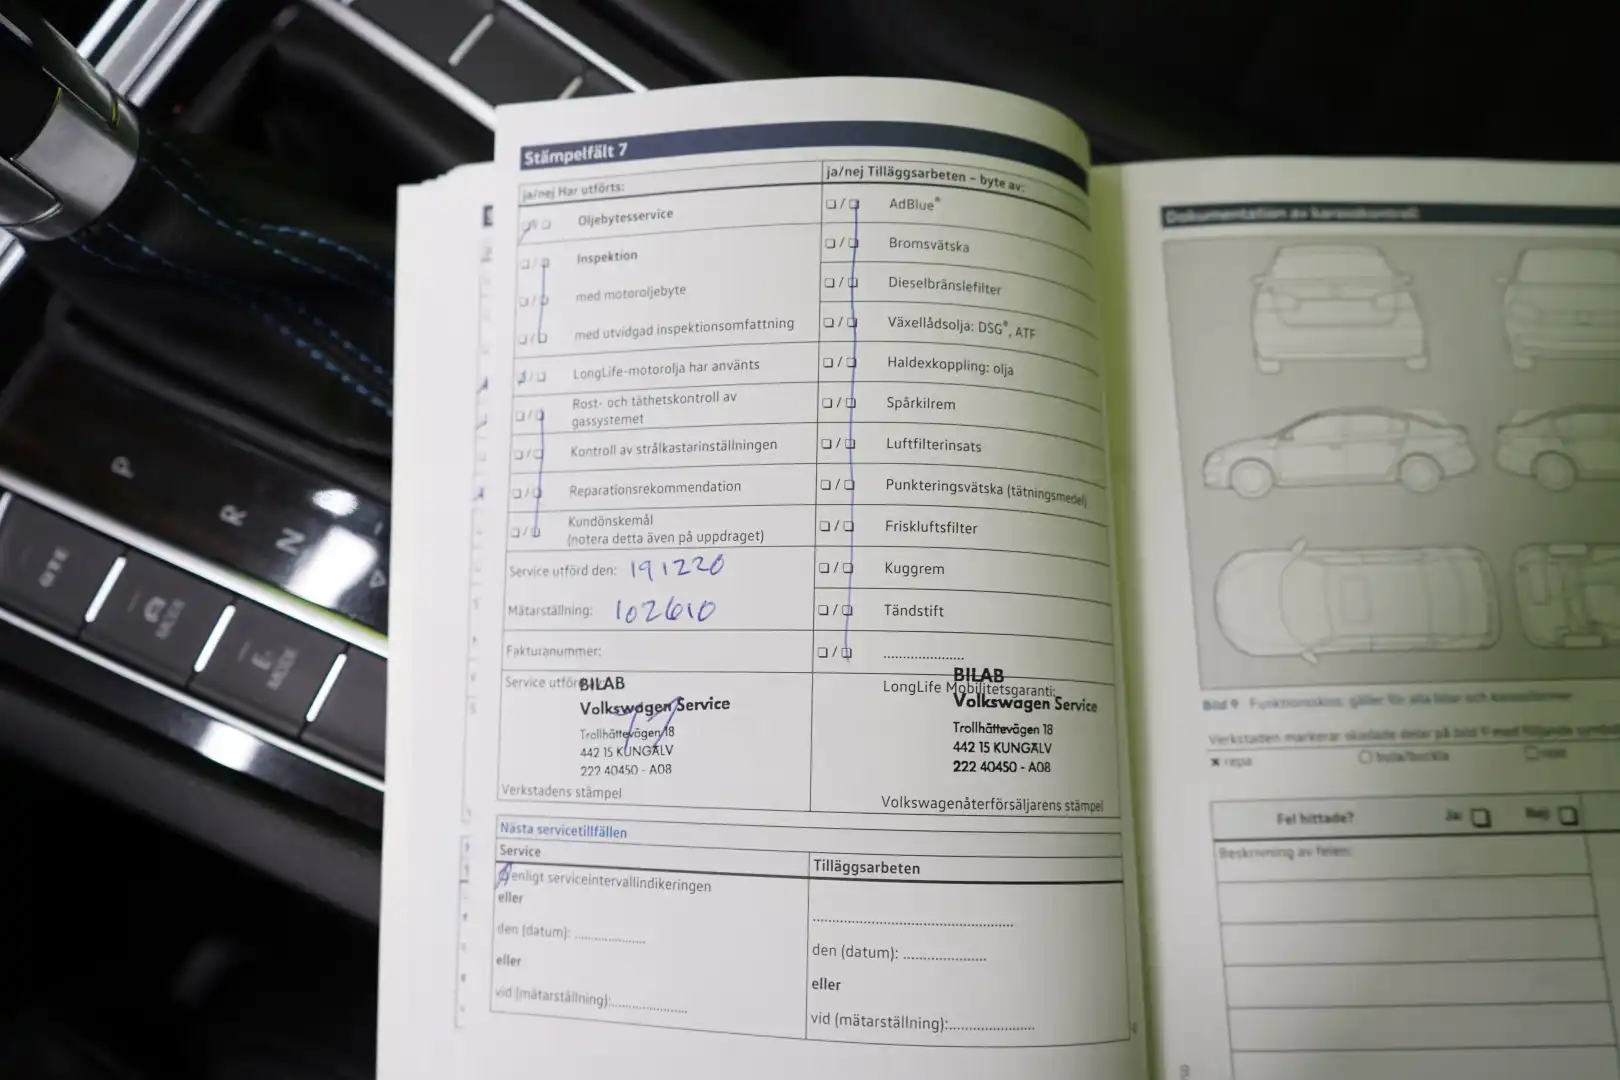 Stämpelfält 7
ja/nej Har utförts:
Oljebytesservice
Inspektion
med motoroljebyte
med utvidgad inspektionsomfattning
LongLife-motorolja har använts
Rost- och täthetskontroll av
gassystemet
Kontroll av strålkastarinställningen
Reparationsrekommendation
Kundönskemål
(notera detta även på uppdraget)
Service utförd den: 191220
Mätarställning: 102610
Fakturanummer:
Service utförd
BILAB
Volkswagen Service
Trollhättevägen 18
442 15 KUNGÄLV
222 40450 - A08
Verkstadens stämpel
ja/nej Tilläggsarbeten – byte av:
AdBlue®
Bromsvätska
Dieselbränslefilter
Växellådsolja: DSG®, ATF
Haldexkoppling: olja
Spårkilrem
Luftfilterinsats
Punkteringsvätska (tätningsmedel)
Friskluftsfilter
Kuggrem
Tändstift
....................
LongLife Mobilitetsgaranti:
BILAB
Volkswagen Service
Trollhättevägen 18
442 15 KUNGÄLV
222 40450 - A08
Volkswagenåterförsäljarens stämpel
Nästa servicetillfällen
Service
enligt serviceintervallindikeringen
eller
den (datum): ..................
eller
vid (mätarställning):....................
Tilläggsarbeten
..................................................
den (datum): .....................
eller
vid (mätarställning):.....................
Dokumentation av karosskontroll
Bild 9 Funktionsskiss: gäller för alla bilar och karossformer
Verkstaden markerar skadade delar på bild 9 med följande
x repa
bula/buckla
Fel hittade? Ja: Nej:
Beskrivning av felen:
P
R
N
GTE
MODE
E-
MODE